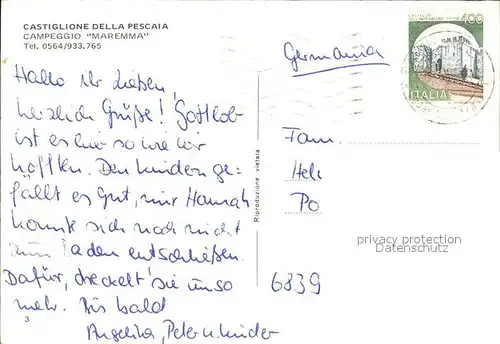 CASTIGLIONE DELLA PESCAIA
CAMPEGGIO "MAREMMA"
Tel. 0564/933.765
400
ITALIA
Germania
Hallo Ihr Lieben,
herzlich Grüße! Gottlob
ist es hier so wie wir
hofften. Den Kindern ge=
fällt es gut, nur Hannah
konnte sich noch nicht
zum Baden entschließen.
Dafür, dreckelt sie umso
mehr. Bis bald
Angelika, Peter u. Kinder
Riproduzione vietata
Fam.
Hel
Po
privacy protection
Datenschutz
6839
3